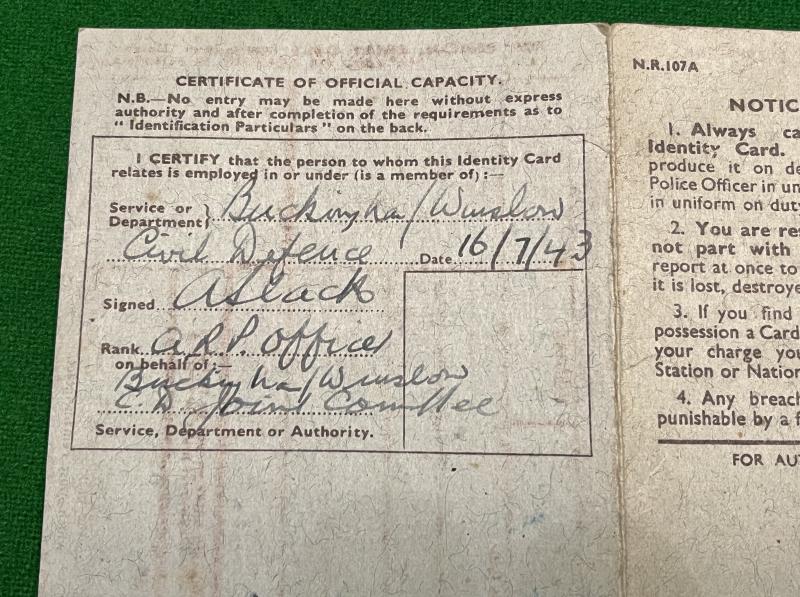 CERTIFICATE OF OFFICIAL CAPACITY.
N.B.—No entry may be made here without express
authority and after completion of the requirements as to
" Identification Particulars " on the back.
I CERTIFY that the person to whom this Identity Card
relates is employed in or under (is a member of) :—
Service or } Buckingha/Winslow
Department
Civil Defence Date 16/7/43
Signed A Slack
Rank A.R.P. Officer
on behalf of :—
Buckingha/Winslow
C.D. Joint Comittee
Service, Department or Authority.
N.R.107A
NOTIC
1. Always ca
Identity Card.
produce it on de
Police Officer in un
in uniform on dut
2. You are res
not part with
report at once to
it is lost, destroye
3. If you find
possession a Card
your charge you
Station or Nation
4. Any breach
punishable by a f
FOR AU